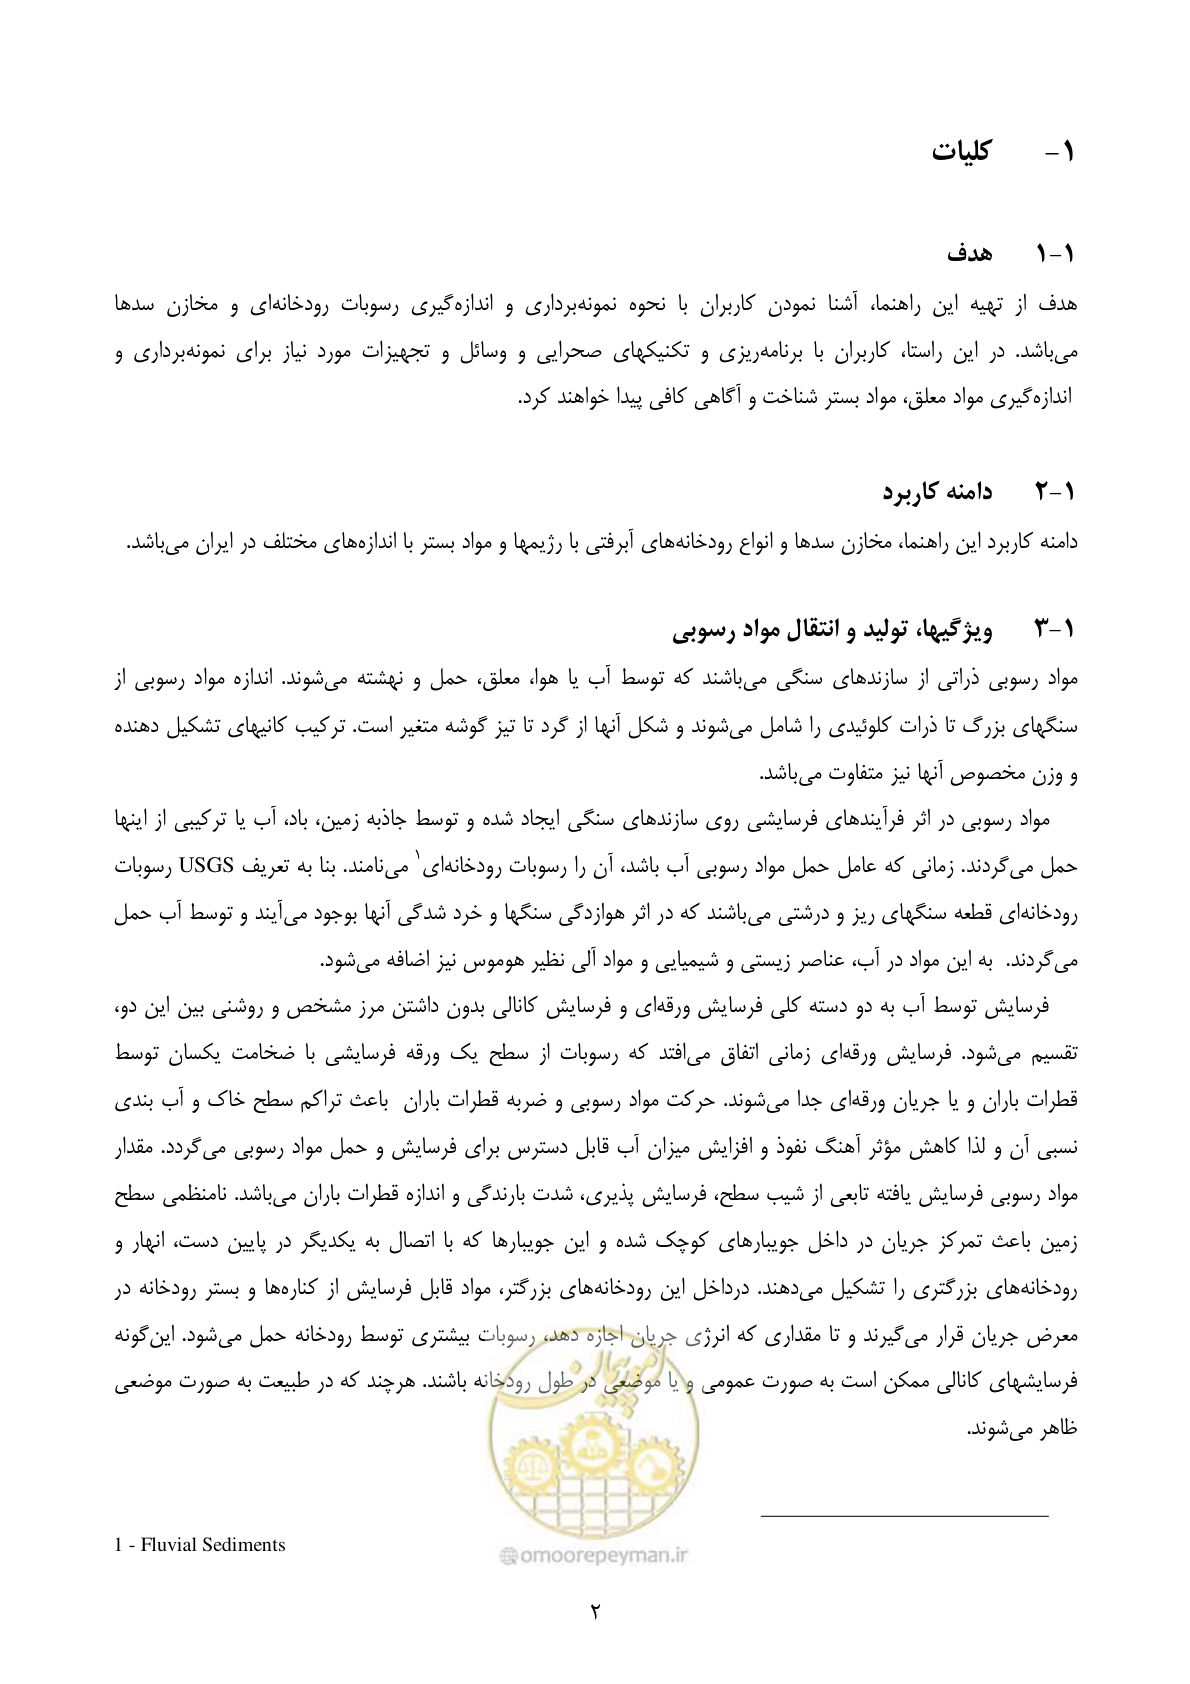 ۱- کلیات
۱-۱ هدف
هدف از تهیه این راهنما، آشنا نمودن کاربران با نحوه نمونه‌برداری و اندازه‌گیری رسوبات رودخانه‌ای و مخازن سدها
می‌باشد. در این راستا، کاربران با برنامه‌ریزی و تکنیکهای صحرایی و وسائل و تجهیزات مورد نیاز برای نمونه‌برداری و
اندازه‌گیری مواد معلق، مواد بستر شناخت و آگاهی کافی پیدا خواهند کرد.
۲-۱ دامنه کاربرد
دامنه کاربرد این راهنما، مخازن سدها و انواع رودخانه‌های آبرفتی با رژیمها و مواد بستر با اندازه‌های مختلف در ایران می‌باشد.
۳-۱ ویژگیها، تولید و انتقال مواد رسوبی
مواد رسوبی ذراتی از سازندهای سنگی می‌باشند که توسط آب یا هوا، معلق، حمل و نهشته می‌شوند. اندازه مواد رسوبی از
سنگهای بزرگ تا ذرات کلوئیدی را شامل می‌شوند و شکل آنها از گرد تا تیز گوشه متغیر است. ترکیب کانیهای تشکیل دهنده
و وزن مخصوص آنها نیز متفاوت می‌باشد.
مواد رسوبی در اثر فرآیندهای فرسایشی روی سازندهای سنگی ایجاد شده و توسط جاذبه زمین، باد، آب یا ترکیبی از اینها
حمل می‌گردند. زمانی که عامل حمل مواد رسوبی آب باشد، آن را رسوبات رودخانه‌ای۱ می‌نامند. بنا به تعریف USGS رسوبات
رودخانه‌ای قطعه سنگهای ریز و درشتی می‌باشند که در اثر هوازدگی سنگها و خرد شدگی آنها بوجود می‌آیند و توسط آب حمل
می‌گردند. به این مواد در آب، عناصر زیستی و شیمیایی و مواد آلی نظیر هوموس نیز اضافه می‌شود.
فرسایش توسط آب به دو دسته کلی فرسایش ورقه‌ای و فرسایش کانالی بدون داشتن مرز مشخص و روشنی بین این دو،
تقسیم می‌شود. فرسایش ورقه‌ای زمانی اتفاق می‌افتد که رسوبات از سطح یک ورقه فرسایشی با ضخامت یکسان توسط
قطرات باران و یا جریان ورقه‌ای جدا می‌شوند. حرکت مواد رسوبی و ضربه قطرات باران باعث تراکم سطح خاک و آب بندی
نسبی آن و لذا کاهش مؤثر آهنگ نفوذ و افزایش میزان آب قابل دسترس برای فرسایش و حمل مواد رسوبی می‌گردد. مقدار
مواد رسوبی فرسایش یافته تابعی از شیب سطح، فرسایش پذیری، شدت بارندگی و اندازه قطرات باران می‌باشد. نامنظمی سطح
زمین باعث تمرکز جریان در داخل جویبارهای کوچک شده و این جویبارها که با اتصال به یکدیگر در پایین دست، انهار و
رودخانه‌های بزرگتری را تشکیل می‌دهند. درداخل این رودخانه‌های بزرگتر، مواد قابل فرسایش از کناره‌ها و بستر رودخانه در
معرض جریان قرار می‌گیرند و تا مقداری که انرژی جریان اجازه دهد، رسوبات بیشتری توسط رودخانه حمل می‌شود. این‌گونه
فرسایشهای کانالی ممکن است به صورت عمومی و یا موضعی در طول رودخانه باشند. هرچند که در طبیعت به صورت موضعی
ظاهر می‌شوند.
امور پیمان
1 - Fluvial Sediments
@omoorepeyman.ir
۲